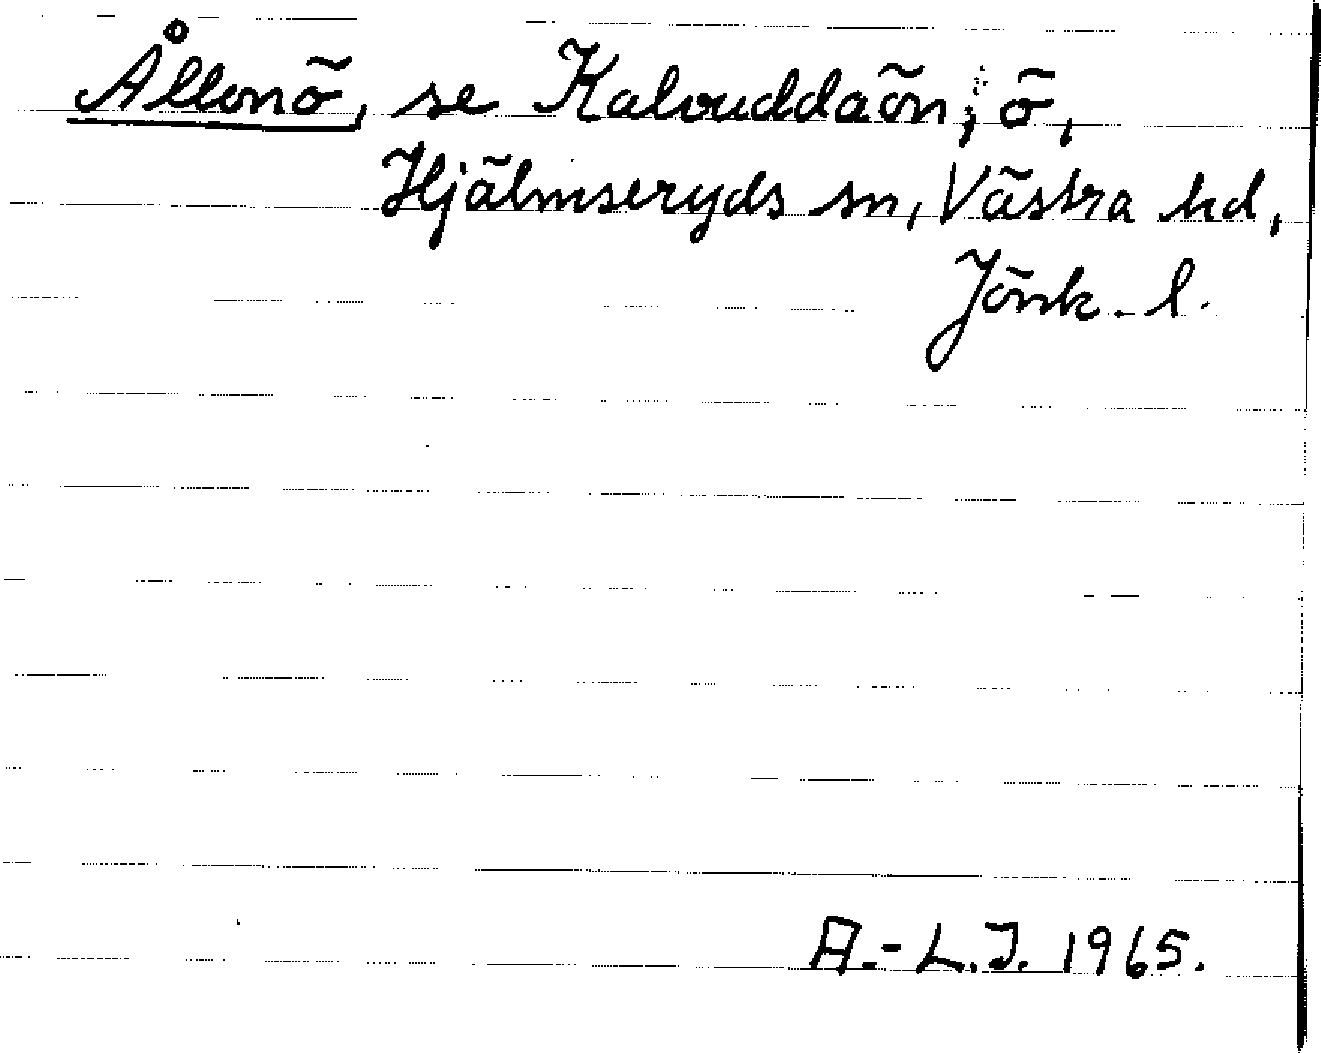 Ållonö, se Kalvuddaön; ö,
Hjälmseryds sn, Västra hd,
Jönk. l.
A.-L.J. 1965.